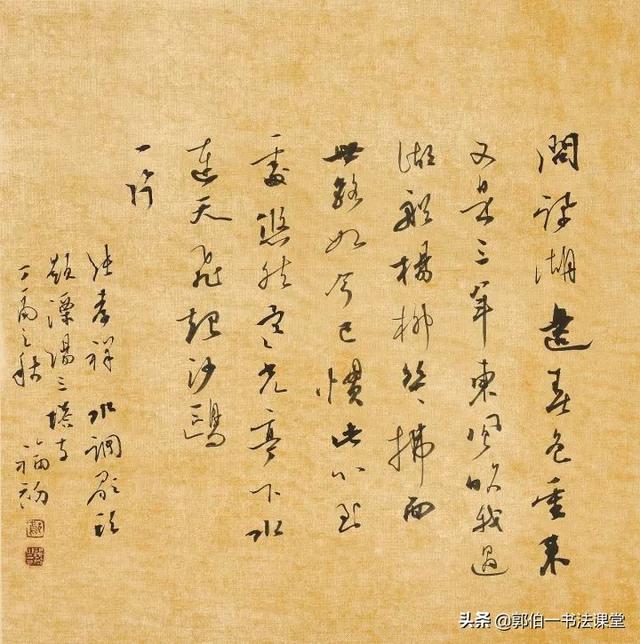 問訊湖邊春色重來
又是三年東風吹我過
湖船楊柳絲〻拂面
世路如今已慣此心到
處悠然寒光亭下水
連天飛起沙鷗
一片
張孝祥 水調歌頭
題溧陽三塔寺
丁酉之秋
头条 @郭伯一书法课堂